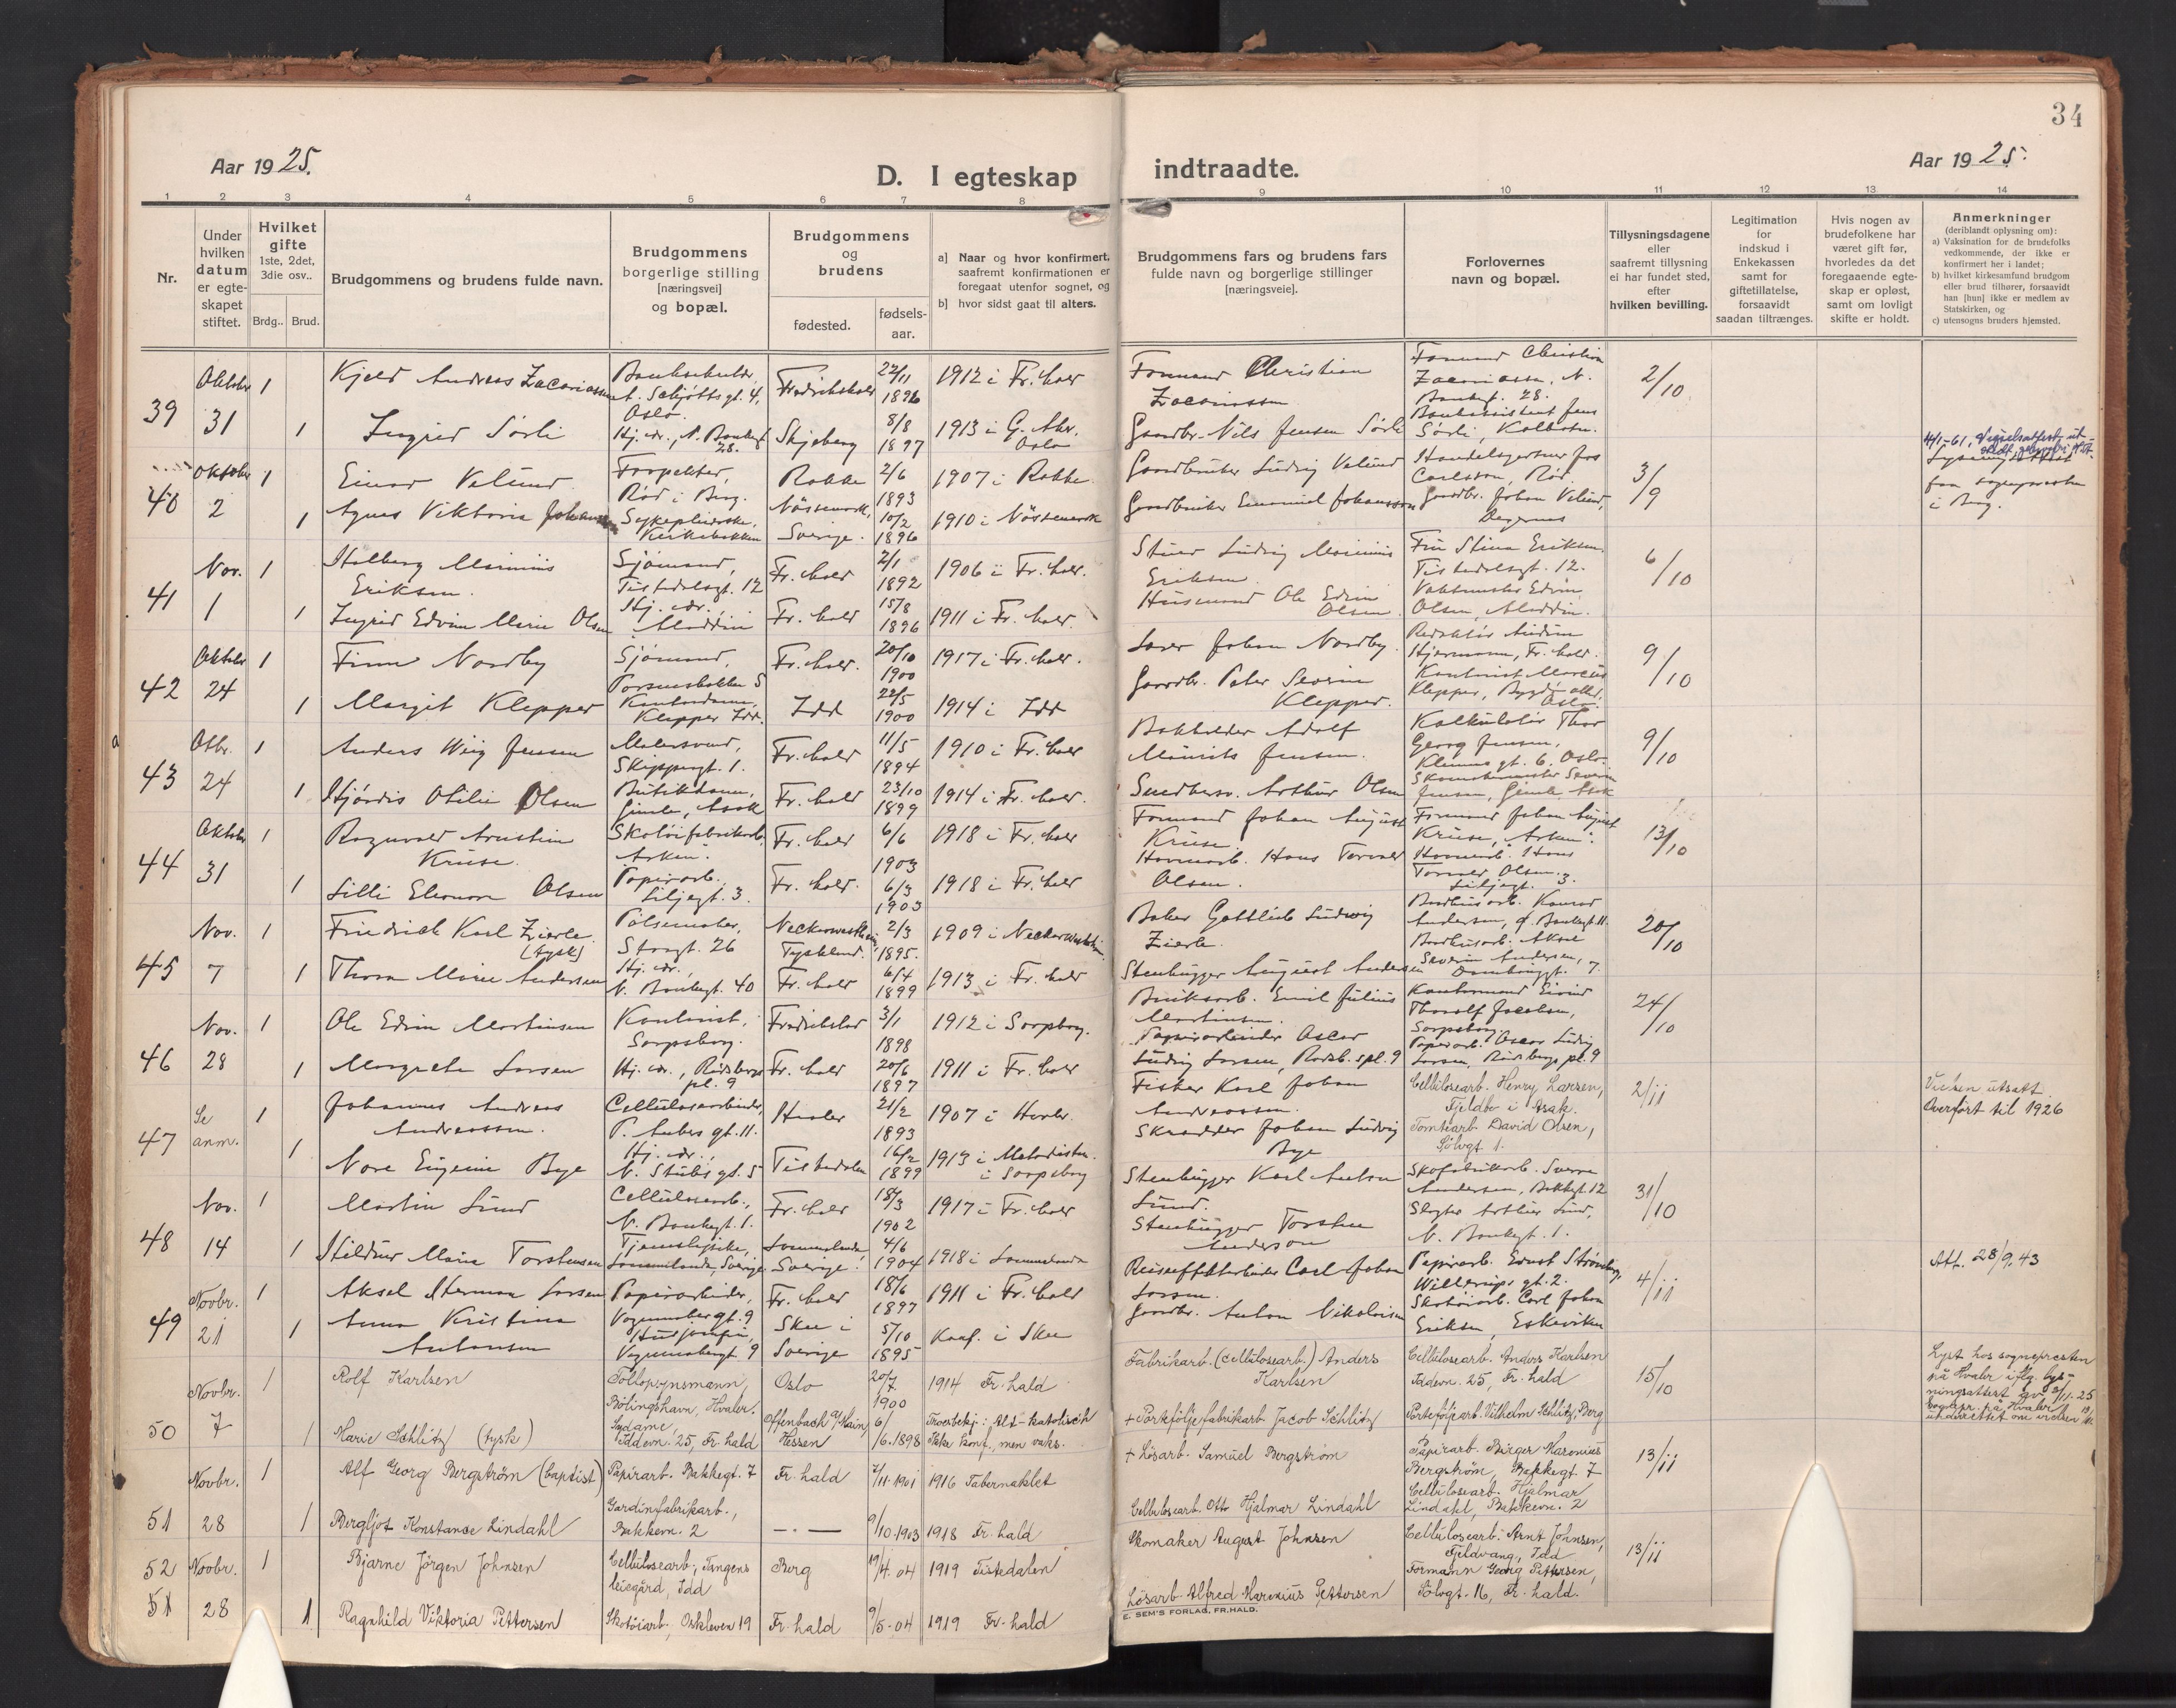 34
Aar 1925.
D. I egteskap indtraadte.
Aar 1925.
1 2 3 4 5 6 7 8 9 10 11 12 13 14
Nr.
Under hvilken datum er egteskapet stiftet.
Hvilket gifte 1ste, 2det, 3die osv..
Brdg.. Brud.
Brudgommens og brudens fulde navn.
Brudgommens borgerlige stilling [næringsvei] og bopæl.
Brudgommens og brudens
fødested.
fødselsaar.
a] Naar og hvor konfirmert, saafremt konfirmationen er foregaat utenfor sognet, og
b] hvor sidst gaat til alters.
Brudgommens fars og brudens fars fulde navn og borgerlige stillinger [næringsveie].
Forlovernes navn og bopæl.
Tillysningsdagene eller saafremt tillysning ei har fundet sted, efter hvilken bevilling.
Legitimation for indskud i Enkekassen samt for giftetillatelse, forsaavidt saadan tiltrænges.
Hvis nogen av brudefolkene har været gift før, hvorledes da det foregaaende egteskap er opløst, samt om lovligt skifte er holdt.
Anmerkninger (deriblandt oplysning om):
a) Vaksination for de brudefolks vedkommende, der ikke er konfirmert her i landet;
b) hvilket kirkesamfund brudgom eller brud tilhører, forsaavidt han [hun] ikke er medlem av Statskirken, og
c) utensogns bruders hjemsted.
39 Oktober 31
1 Kjeld Andreas Zacariassen
Schjøtts gt. 4, Oslo.
Fredrikshald 22/11 1896
1912 i Fr.hald
Formand Christian Zacariassen
Formand Christian Zacariassen, N. Bankgt. 28.
2/10
1 Ingrid Sørli
Hj. vr., N. Bankgt 28.
Skjeberg 8/8 1897
1913 i G. Aker, Oslo
Gaardbr. Nils Jensen Sørli
Bankassistent Jens Sørli, Kolbotn.
40 Oktober 2
1 Einar Velund
Rød i Berg.
Rokke 2/6 1893
1907 i Rokke.
Gaardbruker Ludvig Velund
Carlsson, Rød.
3/9
4/1-61, Vigselsattest
fra sognepresten i Berg.
1 Agnes Viktoria Johansson
Sykepleierske, Kirkebakken
Nössemark, Sverige. 10/2 1896
1910 i Nössemark
Gaardbruker Emanuel Johansson
Gaardbr. Johan Velund, Degernes
41 Nov. 1
1 Halberg Marinius Eriksen.
Sjømand, Tistedalsgt. 12
Fr.hald 2/1 1892
1906 i Fr.hald.
Stuer Ludvig Marinius Eriksen.
Fru Stina Eriksen. Tistedalsgt. 12.
6/10
1 Ingrid Edvine Marie Olsen
Hj. vr., Aladdin
Fr.hald 15/8 1896
1911 i Fr.hald.
Husmand Ole Edvin Olsen.
Vaktmester Edvin Olsen, Aladdin.
42 Oktober 24
1 Finn Nordby
Sjømand, Porsnesbakken 5
Fr.hald. 20/10 1900
1917 i Fr.hald.
Johan Nordby.
Redaktør Hjermann, Fr.hald.
9/10
1 Margit Klepper
Kontordame, Klepper Idd.
Idd 22/5 1900
1914 i Idd
Gaardbr. Peter Severin Klepper.
Kontorist Marcus Klepper, Bygdø allé. Oslo.
43 Otbr. 24
1 Anders Wiig Jensen
Malersvend, Skippergt. 1.
Fr.hald 11/5 1894
1910 i Fr.hald
Bokholder Adolf Maurits Jensen.
Kalkulatør Thor Georg Jensen, Klemms gt. 6, Oslo.
9/10
1 Hjørdis Otilie Olsen
Butikdame, Gimle, Asak
Fr.hald 23/10 1899
1914 i Fr.hald.
Smedbersv. Arthur Olsen
Severin Jensen, Gimle, Asak
44 Oktober 31
1 Ragnvald Arnstein Kruse.
Skotøifabrikarb., Arken.
Fr.hald 6/6 1903
1918 i Fr.hald
Formand Johan August Kruse.
Formand Johan August Kruse, Arken.
13/10
1 Lilli Eleonora Olsen
Papirarb. Liljegt. 3.
Fr.hald. 6/3 1903
1918 i Fr.hald
Havnearb. Hans Torvald Olsen.
Havnearb. Hans Torvald Olsen. Liljegt. 3.
45 Nov. 7
1 Friedrich Karl Zierle (tysk)
Pølsemaker, Storgt. 26
Neckarwestheim, Tyskland. 2/3 1895.
1909 i Neckarwestheim.
Baker Gottlieb Ludwig Zierle.
Konrad Andersen, Ø. Bankgt. 11.
20/10
1 Thora Marie Andersen
Hj. vr., N. Bankgt. 40
Fr.hald 6/4 1899
1913 i Fr.hald
Stenhugger August Andersen
Aksel Severin Andersen, 7.
46 Nov. 28
1 Ole Edvin Martinsen
Kontorist, Sarpsborg.
Fredrikstad 3/1 1898
1912 i Sarpsborg.
Bruksarb. Emil Julius Martinsen.
Kontormand Eivind Thoralf Jacobsen, Sarpsborg.
24/10
1 Margrethe Larsen
Hj. vr., Rødsbergs pl. 9
Fr.hald 20/6 1897
1911 i Fr.hald
Papirarbeider Oscar Ludvig Larsen, Rødsb. pl. 9
Papirarb. Oscar Ludvig Larsen, Rødsbergs pl. 9
47 Se anm.
1 Johannes Andreas Andreassen.
Cellulosearbeider, P. Ankers gt. 11.
Hvaler 21/2 1893
1907 i Hvaler.
Fisker Karl Johan Andreassen.
Cellulosearb. Henry Larsen, Fjeldbo i Asak.
2/11
Vielsen utsatt. Overført til 1926
1 Nora Eugenie Bye
Hj. vr., N. Stubs gt. 5
Tistedalen 16/2 1899
1913 i Metodistm. i Sarpsborg
Skrædder Johan Ludvig Bye
Tomtearb. David Olsen, Sølvgt. 1.
48 Nov. 14
1 Martin Lund
Cellulosearb., N. Bankgt. 1.
Fr.hald 18/3 1902
1917 i Fr.hald
Stenhugger Karl Anton Lund.
Skofabrikarb. Sverre Andersen, Bakkegt. 12
31/10
1 Hildur Maria Torstensson
Tjenestepike, Lommelanda, Sverige.
Lommelanda, Sverige. 4/6 1904
1918 i Lommelanda
Stenhugger Torsten Anderson
Slagter Arthur Lund, N. Bankgt. 1.
Att. 28/9.43
49 Novbr. 21
1 Aksel Herman Larsen
Papirarbeider, Vognmakergt. 9
Fr.hald 18/6 1897
1911 i Fr.hald
Reiseeffektarbeider Carl Johan Larsen.
Papirarb. Ernst Strømberg, Willerups gt. 2.
4/11
1 Anna Kristina Antonsen
Husjomfru, Vognmakergt. 9
Skee i Sverige 5/10 1895
Konf. i Skee
Gaardbr. Anton Nikolaisen
Skotøiarb. Carl Johan Eriksen, Eskeviken
50 Novbr. 7
1 Rolf Karlsen
Tollopsynsmann, Bølingshavn, Hvaler.
Oslo 20/7 1900
1914 Fr.hald
Fabrikarb. (cellulosearb.) Anders Karlsen
Cellulosearb. Anders Karlsen Iddevn. 25, Fr.hald
15/10
Lyst hos sognepresten på Hvaler iflg. lysningsattest av 3/11-25
Sognepr. på Hvaler underrettet om vielsen
1 Marie Schlitz (tysk)
Sydame Iddevn. 25, Fr.hald
Offenbach a/Main, Hessen 6/6.1898
Troesbekj.: Alt-katolisch Ikke konf., men vaks.
+ Portfølje fabrikarb. Jacob Schlitz
Porteføljearb. Vilhelm Schlitz, Berg
51 Novbr. 28
1 Alf Georg Bergstrøm (baptist)
Papirarb. Bakkegt. 7
Fr.hald 7/11.1901
1916 Tabernaklet
+ Løsarb. Samuel Bergstrøm
Papirarb. Birger Marenius Bergstrøm, Bakkegt. 7
13/11
1 Bergljot Konstance Lindahl
Gardinfabrikarb., Bakkevn. 2
—.— 9/10.1903
1918 Fr.hald
Cellulosearb. Otto Hjalmar Lindahl
Cellulosearb. Hjalmar Lindahl, Bakkevn. 2
52 Novbr. 28
1 Bjarne Jörgen Johnsen
Cellulosearb., Tangens leiegård, Idd
Berg 17/4.04
1919 Tistedalen
Skomaker August Johnsen
Cellulosearb. Arnt Johnsen, Fjeldvang, Idd
13/11
51
1 Ragnhild Viktoria Pettersen
Skotøiarb., Oskleven 19
Fr.hald 9/5-04
1919 Fr.hald
Løsarb. Alfred Marenius Pettersen
Formann Georg Pettersen, Sølvgt. 16, Fr.hald.
E. SEM'S FORLAG, FR.HALD.